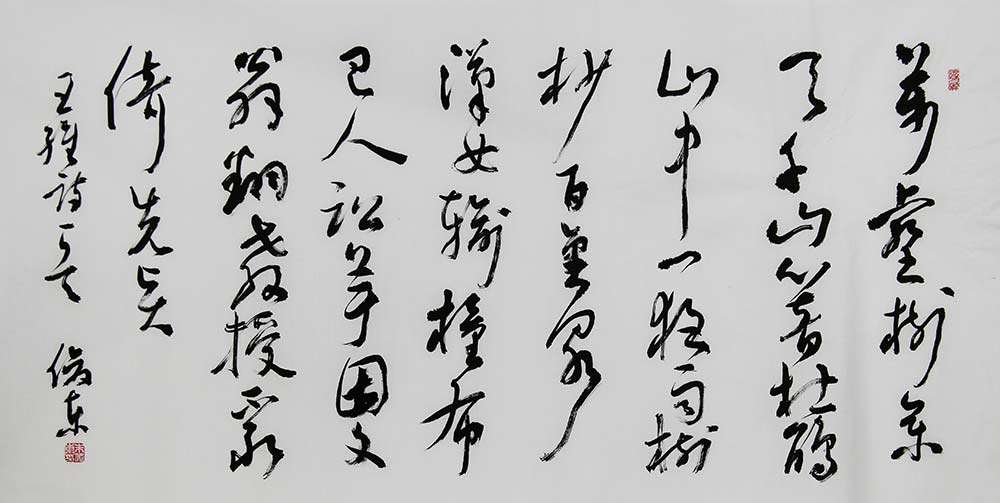 萬壑樹參
天千山響杜鵑
山中一夜雨樹
杪百重泉
漢女輸橦布
巴人訟芋田文
翁翻教授不敢
倚先賢
王維詩一首